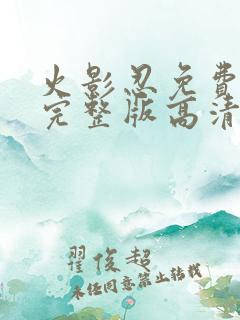 火影忍免費
完整版高清
翟俊超
未经同意禁止转载